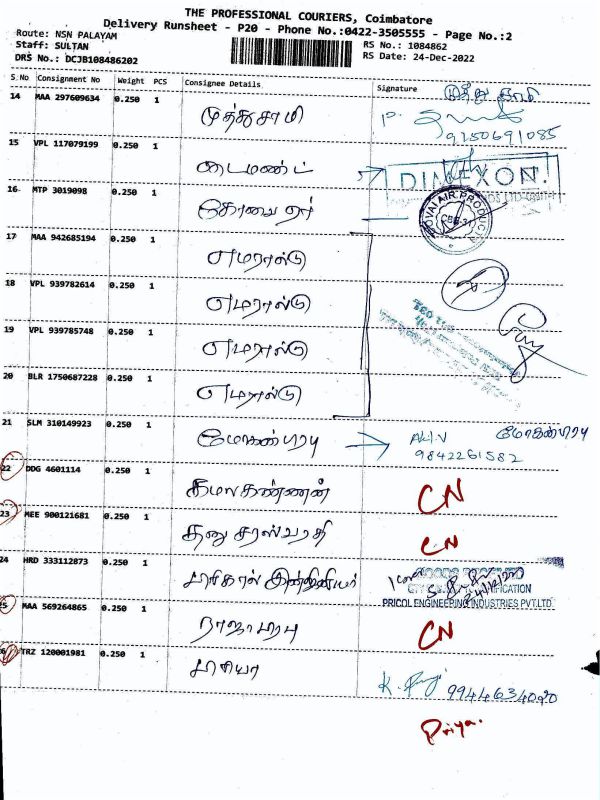 THE PROFESSIONAL COURIERS, Coimbatore
Delivery Runsheet - P20 - Phone No.:0422-3505555 - Page No.:2
Route: NSN PALAYAM
RS No.: 1084862
Staff: SULTAN
RS Date: 24-Dec-2022
DRS No.: DCJB108486202
S.No Consignment No Weight PCS Consignee Details Signature
14 MAA 297609634 0.250 1 முத்துசாமி முத்து சாமி
9250691085
15 VPL 117079199 0.250 1 டைமண்ட்
DIMEXON
16 MTP 3019098 0.250 1 கோவை ஏர்
KOVAI AIR PRODUCTS
CBE-31
17 MAA 942685194 0.250 1 எமரால்டு
18 VPL 939782614 0.250 1 எமரால்டு
19 VPL 939785748 0.250 1 எமரால்டு
20 BLR 1750687228 0.250 1 எமரால்டு
21 SLM 310149923 0.250 1 மோகன்பிரபு மோகன்பிரபு
9842261582
22 DDG 4601114 0.250 1 கமலகண்ணன் CN
23 MEE 900121681 0.250 1 தனு சரஸ்வதி CN
24 HRD 333112873 0.250 1 பிரிகால் இன்ஜினியர்
PRICOL ENGINEERING INDUSTRIES PVT.LTD.
25 MAA 569264865 0.250 1 ராஜா பிரபு CN
26 TRZ 120001981 0.250 1 பிரியா
9944634020
Priya.